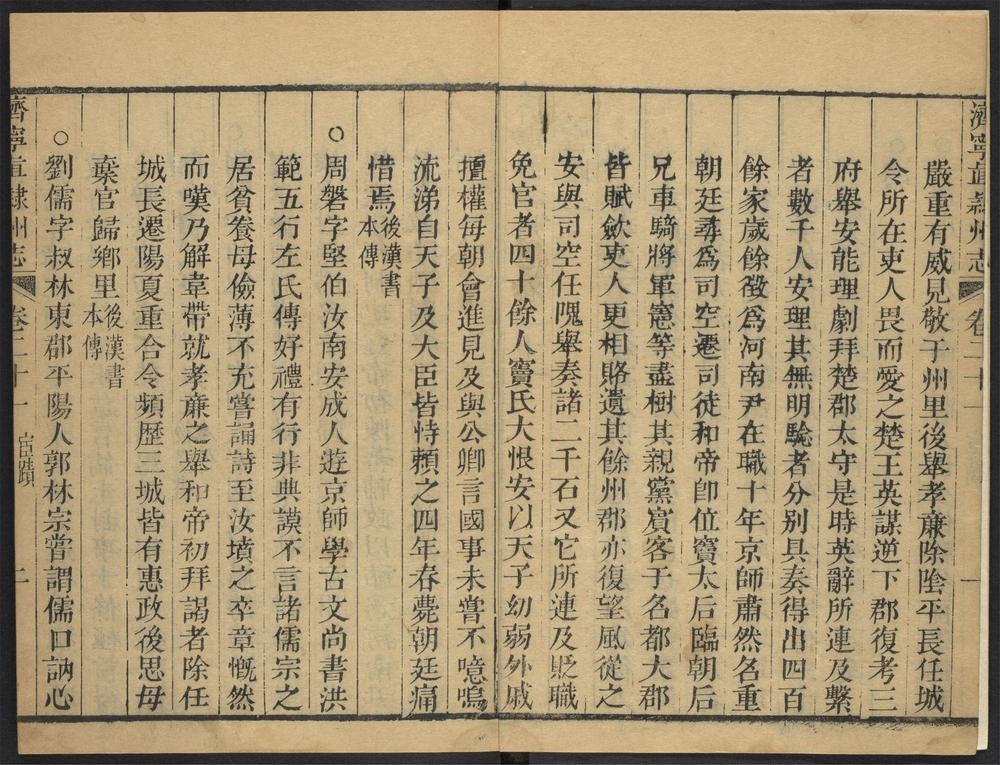 濟寧直隸州志
卷二十一
一
嚴重有威見敬于州里後舉孝亷除陰平長任城
令所在吏人畏而愛之楚王英謀逆下郡復考三
府舉安能理劇拜楚郡太守是時英辭所連及繫
者數千人安理其無明騐者分别具奏得出四百
餘家歲餘徵爲河南尹在職十年京師肅然名重
朝廷尋爲司空遷司徒和帝卽位竇太后臨朝后
兄車騎將軍憲等盡樹其親黨賓客于名都大郡
皆賦歛吏人更相賂遺其餘州郡亦復望風從之
安與司空任隗舉奏諸二千石又它所連及貶職
免官者四十餘人竇氏大恨安以天子幼弱外戚
擅權每朝會進見及與公卿言國事未嘗不噫嗚
流涕自天子及大臣皆恃賴之四年春薨朝廷痛
惜焉後漢書本傳
○周磐字堅伯汝南安成人遊京師學古文尚書洪
範五行左氏傳好禮有行非典謨不言諸儒宗之
居貧養母儉薄不充嘗誦詩至汝墳之卒章慨然
而嘆乃解韋帶就孝亷之舉和帝初拜謁者除任
城長遷陽夏重合令頻歷三城皆有惠政後思母
棄官歸鄉里後漢書本傳
○劉儒字叔林東郡平陽人郭林宗嘗謂儒口訥心
濟寧直隸州志
卷二十一
宦蹟
二